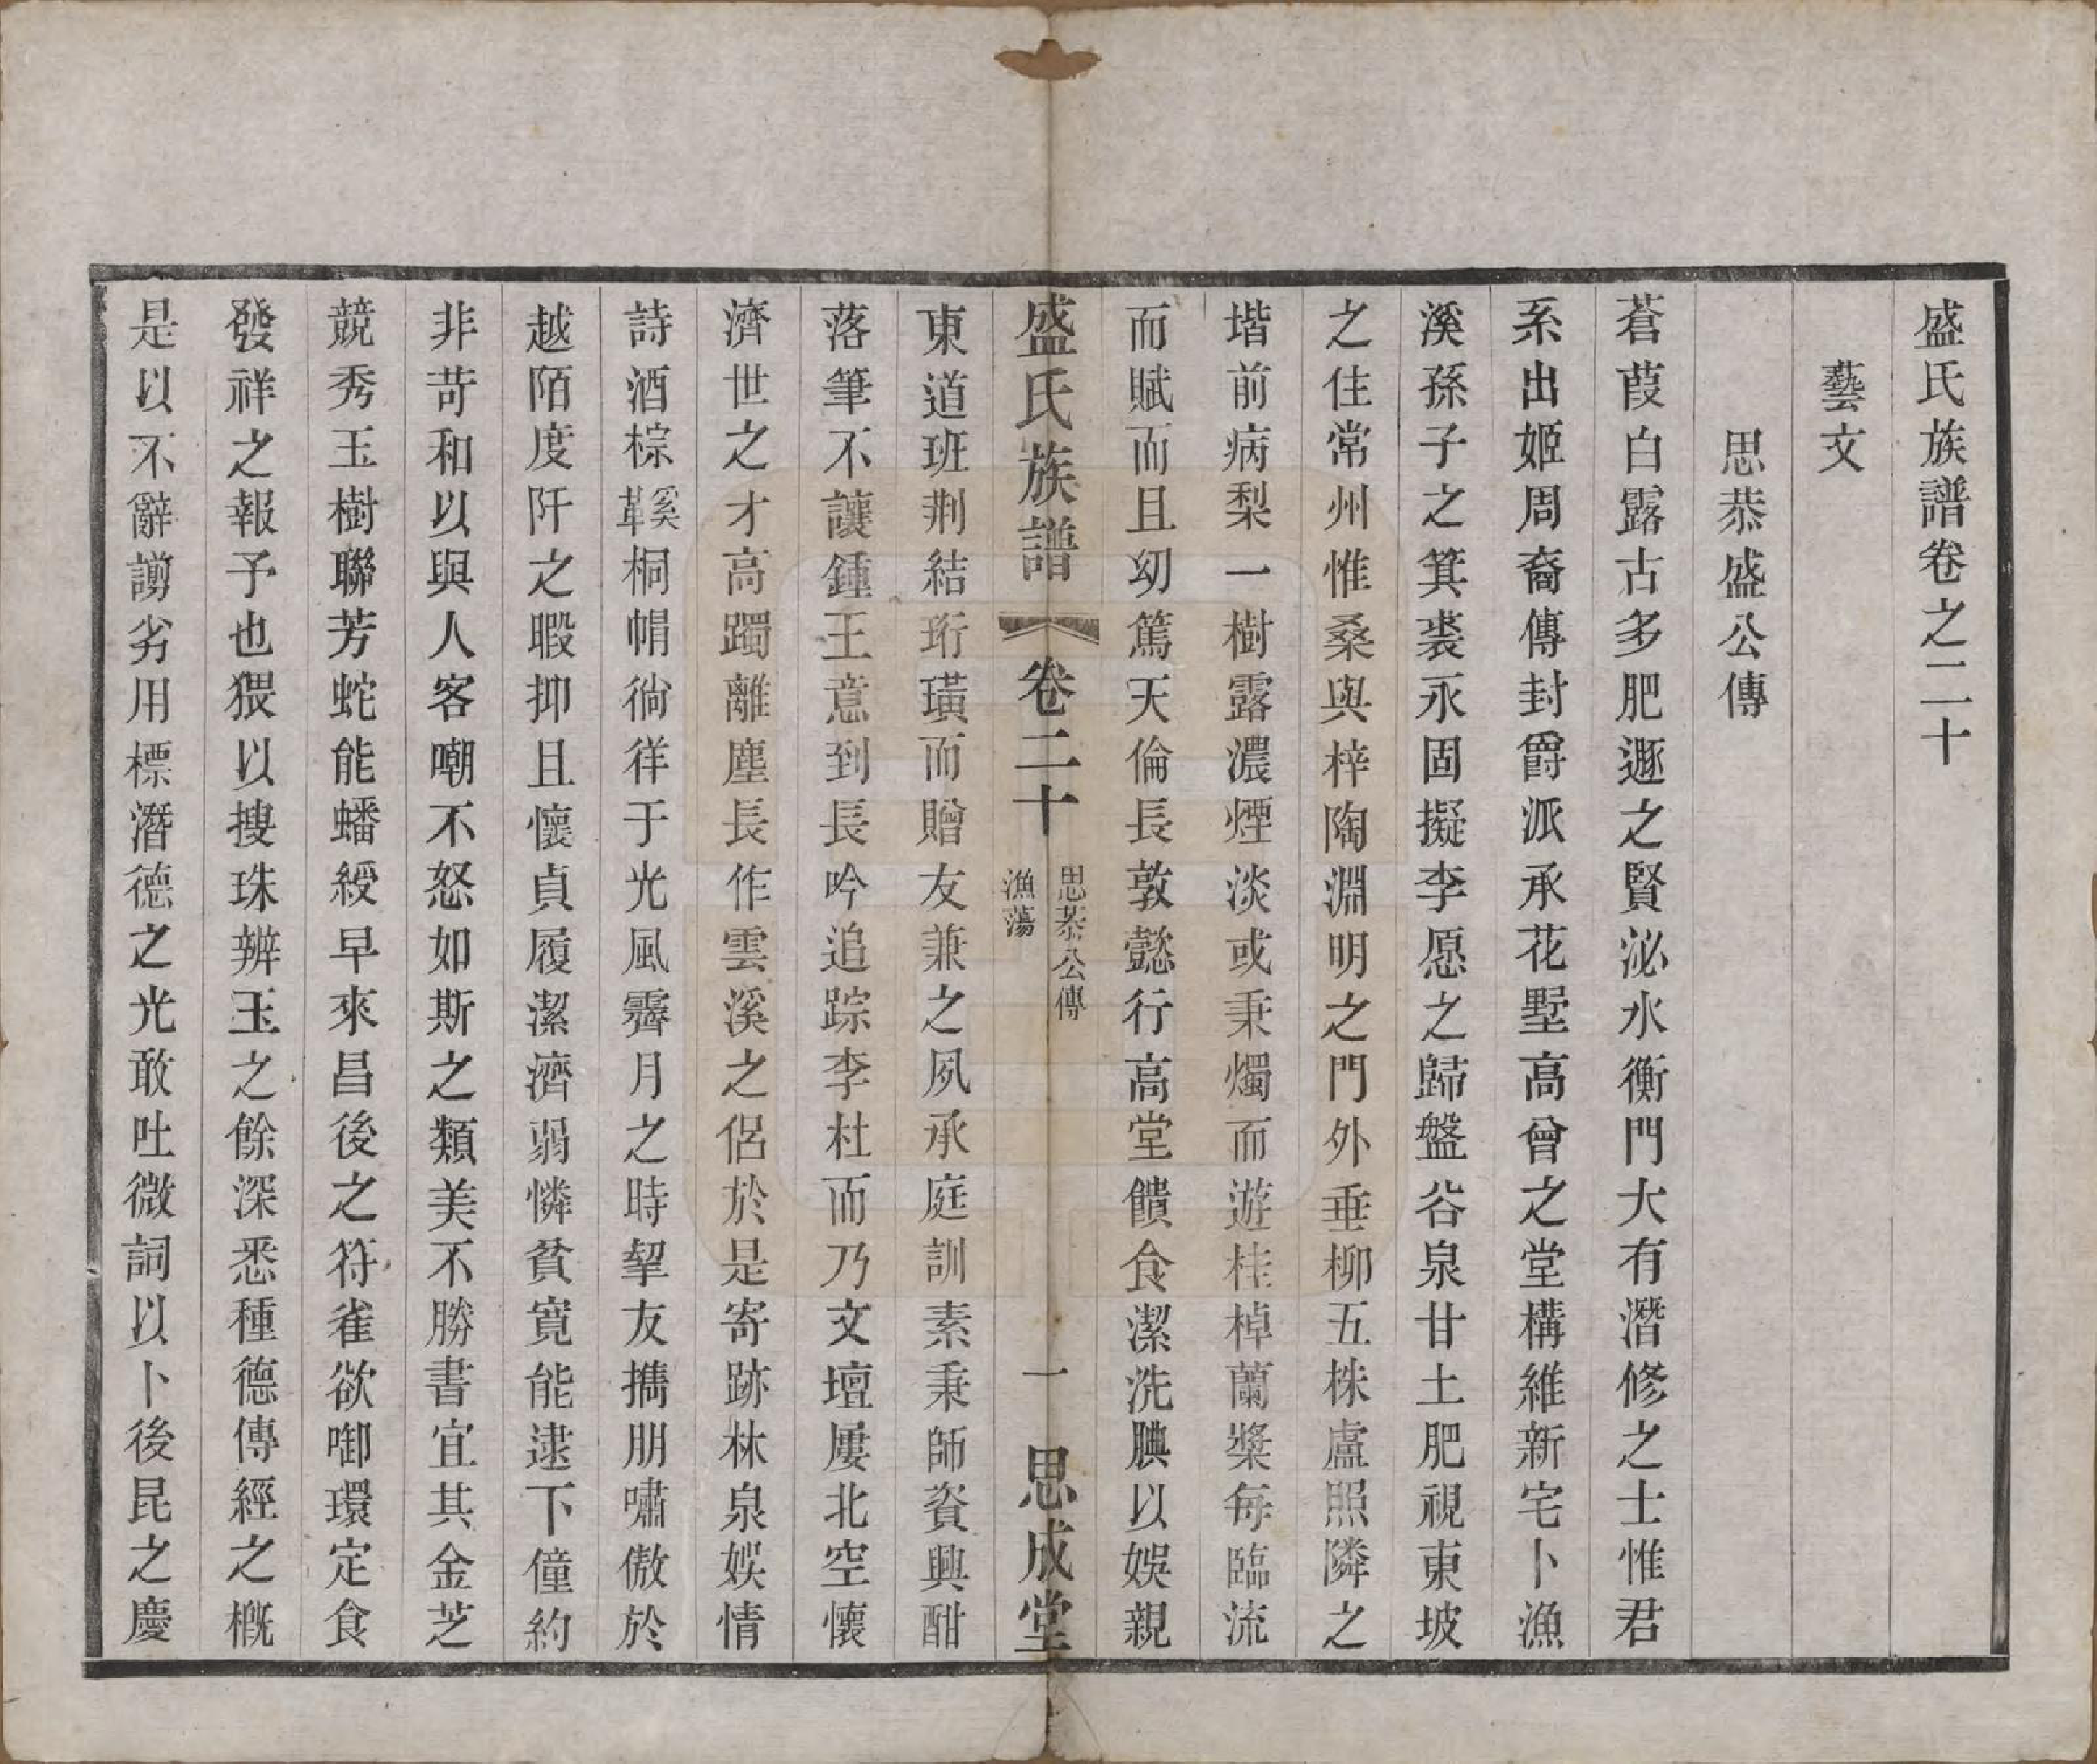 盛氏族譜卷之二十
藝文
思恭盛公傳
蒼葭白露古多肥遯之賢泌水衡門大有潛修之士惟君
系出姬周裔傳封爵派承花墅高曾之堂構維新宅卜漁
溪孫子之箕裘永固擬李愿之歸盤谷泉甘土肥視東坡
之住常州惟桑與梓陶淵明之門外垂柳五株盧照隣之
堦前病梨一樹露濃煙淡或秉燭而遊桂棹蘭槳每臨流
而賦而且幼篤天倫長敦懿行高堂饋食潔洗腆以娛親
盛氏族譜 卷二十 思恭公傳 漁蕩 一 思成堂
東道班荆結珩璜而贈友兼之夙承庭訓素秉師資興酣
落筆不讓鍾王意到長吟追踪李杜而乃文壇屢北空懷
濟世之才高躅離塵長作雲溪之侶於是寄跡林泉娛情
詩酒棕鞵桐帽徜徉于光風霽月之時挈友攜朋嘯傲於
越陌度阡之暇抑且懷貞履潔濟弱憐貧寬能逮下僮約
非苛和以與人客嘲不怒如斯之類美不勝書宜其金芝
競秀玉樹聯芳蛇能蟠綬早來昌後之符雀欲啣環定食
發祥之報予也猥以搜珠辨玉之餘深悉種德傳經之槪
是以不辭謭劣用標潛德之光敢吐微詞以卜後昆之慶